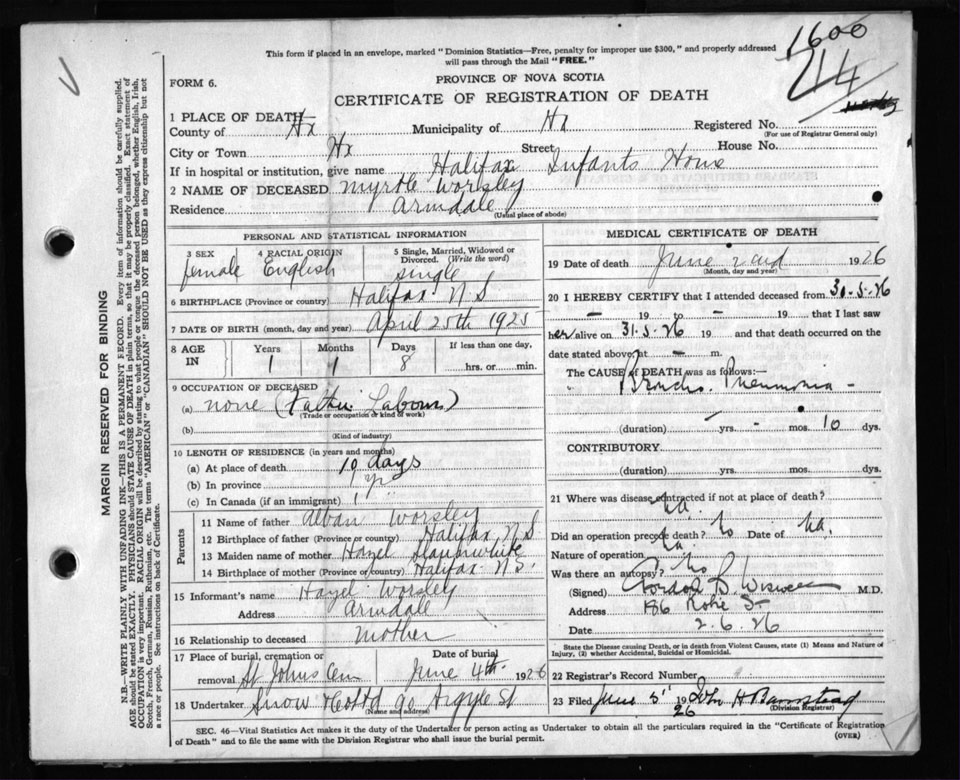 1600
714
This form if placed in an envelope, marked "Dominion Statistics—Free, penalty for improper use $300," and properly addressed
will pass through the Mail "FREE."
FORM 6.
PROVINCE OF NOVA SCOTIA
CERTIFICATE OF REGISTRATION OF DEATH
1 PLACE OF DEATH
County of Hx Municipality of Hx Registered No.
(For use of Registrar General only)
City or Town Hx Street House No.
If in hospital or institution, give name Halifax Infants Home
2 NAME OF DECEASED Myrtle Worsley
Residence Armdale
(Usual place of abode)
PERSONAL AND STATISTICAL INFORMATION
3 SEX 4 RACIAL ORIGIN 5 Single, Married, Widowed or
Divorced. (Write the word)
female English single
6 BIRTHPLACE (Province or country) Halifax N S
7 DATE OF BIRTH (month, day and year) April 25th 1925
8 AGE IN Years Months Days If less than one day,
1 1 8 hrs. or min.
9 OCCUPATION OF DECEASED
(a) none (Father Labour)
(Trade or occupation or kind of work)
(b)
(Kind of industry)
10 LENGTH OF RESIDENCE (in years and months)
(a) At place of death 10 days
(b) In province 1 yr
(c) In Canada (if an immigrant)
Parents
11 Name of father Alban Worsley
12 Birthplace of father (Province or country) Halifax N S
13 Maiden name of mother Hazel Slaunwhite
14 Birthplace of mother (Province or country) Halifax N S.
15 Informant's name Hazel Worsley
Address Armdale
16 Relationship to deceased mother
17 Place of burial, cremation or Date of burial
removal St Johns Cem June 4th 1926
18 Undertaker Snow & Co Ltd 90 Argyle St
(Name and address)
MEDICAL CERTIFICATE OF DEATH
19 Date of death June 2nd 1926
(Month, day and year)
20 I HEREBY CERTIFY that I attended deceased from 31-5-26
— 19 to — 19 that I last saw
her alive on 31-5-26 19 and that death occurred on the
date stated above, at — m.
The CAUSE of DEATH was as follows:—
Broncho. Pneumonia -
(duration) - yrs. - mos. 10 dys.
CONTRIBUTORY.
(duration) yrs. mos. dys.
21 Where was disease contracted if not at place of death?
na.
Did an operation precede death? no Date of na.
Nature of operation na.
Was there an autopsy? no
(Signed) Gordon D. Wiswell M.D.
Address 186 Robie St
Date 2.6.26
State the Disease causing Death, or in death from Violent Causes, state (1) Means and Nature of
Injury, (2) whether Accidental, Suicidal or Homicidal.
22 Registrar's Record Number
23 Filed June 5" 1926 John H Barnstead
(Division Registrar)
SEC. 46—Vital Statistics Act makes it the duty of the Undertaker or person acting as Undertaker to obtain all the particulars required in the "Certificate of Registration
of Death" and to file the same with the Division Registrar who shall issue the burial permit.
(OVER)
MARGIN RESERVED FOR BINDING
N.B.—WRITE PLAINLY WITH UNFADING INK—THIS IS A PERMANENT RECORD. Every item of information should be carefully supplied.
AGE should be stated EXACTLY. PHYSICIANS should STATE CAUSE OF DEATH in plain terms, so that it may be properly classified. Exact statement of
OCCUPATION is very important. RACIAL ORIGIN will be described by stating to what people or tongue the deceased person belonged, whether English, Irish,
Scotch, French, German, Russian, Ruthenian, etc. The terms "AMERICAN" or "CANADIAN" SHOULD NOT BE USED as they express citizenship but not
a race or people. See instructions on back of Certificate.